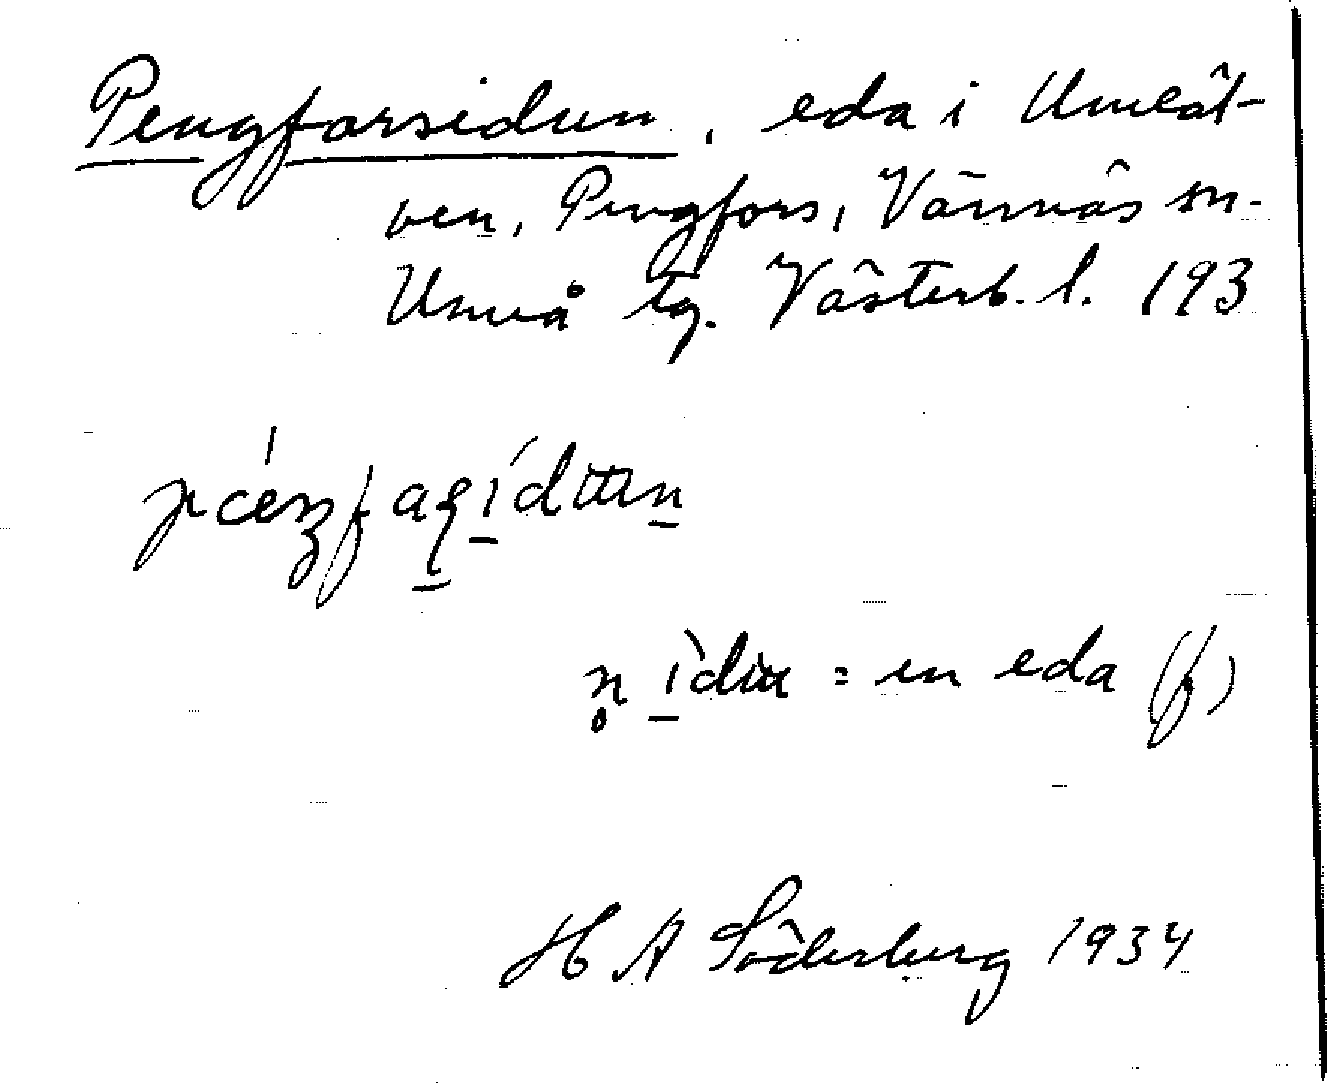 Pengforsidun, eda i Umeäl-
ven, Pengfors, Vännäs sn.
Umeå tg. Västerb. l. 193
n̥ ìdu = en eda (f)
H A Söderberg 1934